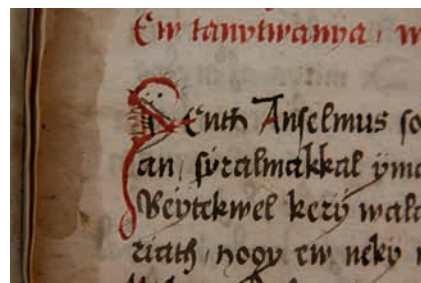 Ew tanytwanya, w
Senth Anselmus so
an, syralmakkal yma
Reytekwel kery wala
riath, hogy ew neky